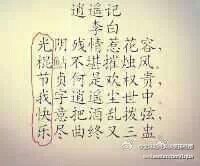 逍遥记
李白
光阴残情惹花容，
棍贴不堪摧烛风。
节贞何足欢权贵，
我字逍遥尘世中。
快意把酒乱拨弦，
乐尽曲终又三盅